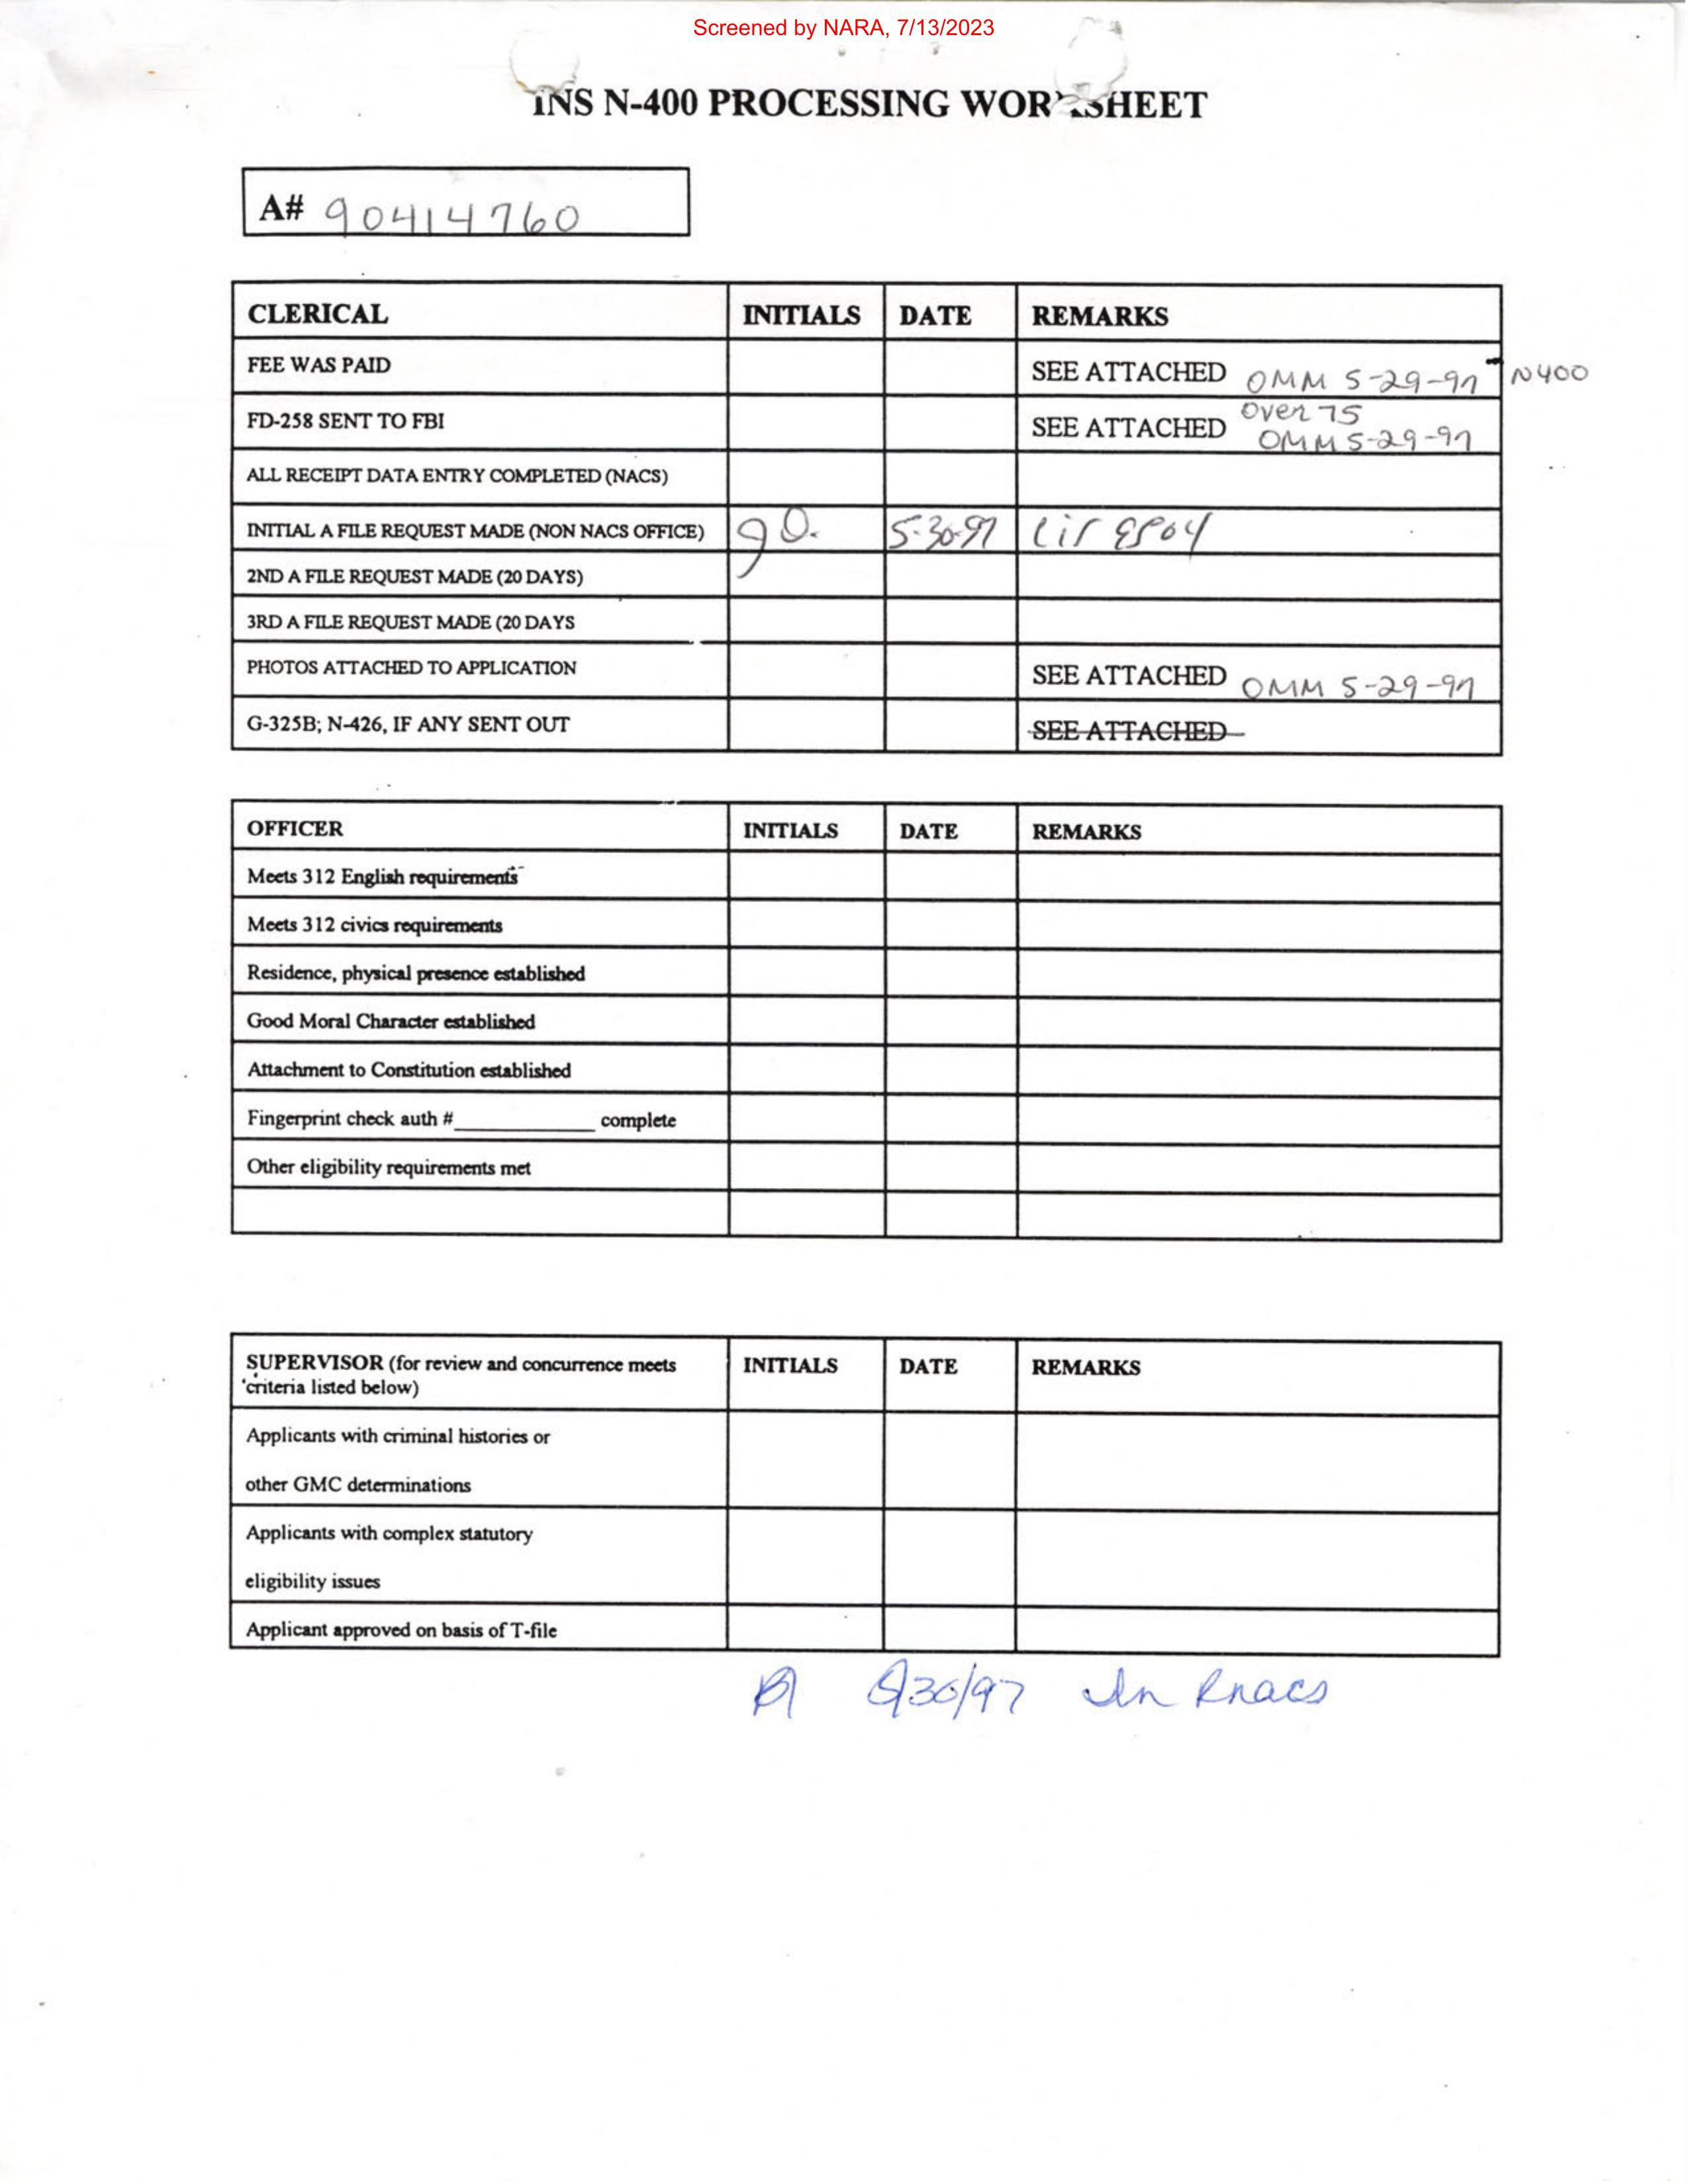 Screened by NARA, 7/13/2023
INS N-400 PROCESSING WORKSHEET
A# 90414760
CLERICAL INITIALS DATE REMARKS
FEE WAS PAID SEE ATTACHED OMM 5-29-97 N400
FD-258 SENT TO FBI SEE ATTACHED Over 75
OMM 5-29-97
ALL RECEIPT DATA ENTRY COMPLETED (NACS)
INITIAL A FILE REQUEST MADE (NON NACS OFFICE) 5-30-97
2ND A FILE REQUEST MADE (20 DAYS)
3RD A FILE REQUEST MADE (20 DAYS
PHOTOS ATTACHED TO APPLICATION SEE ATTACHED OMM 5-29-97
G-325B; N-426, IF ANY SENT OUT SEE ATTACHED
OFFICER INITIALS DATE REMARKS
Meets 312 English requirements
Meets 312 civics requirements
Residence, physical presence established
Good Moral Character established
Attachment to Constitution established
Fingerprint check auth #____________ complete
Other eligibility requirements met
SUPERVISOR (for review and concurrence meets INITIALS DATE REMARKS
criteria listed below)
Applicants with criminal histories or
other GMC determinations
Applicants with complex statutory
eligibility issues
Applicant approved on basis of T-file
In Rnacs